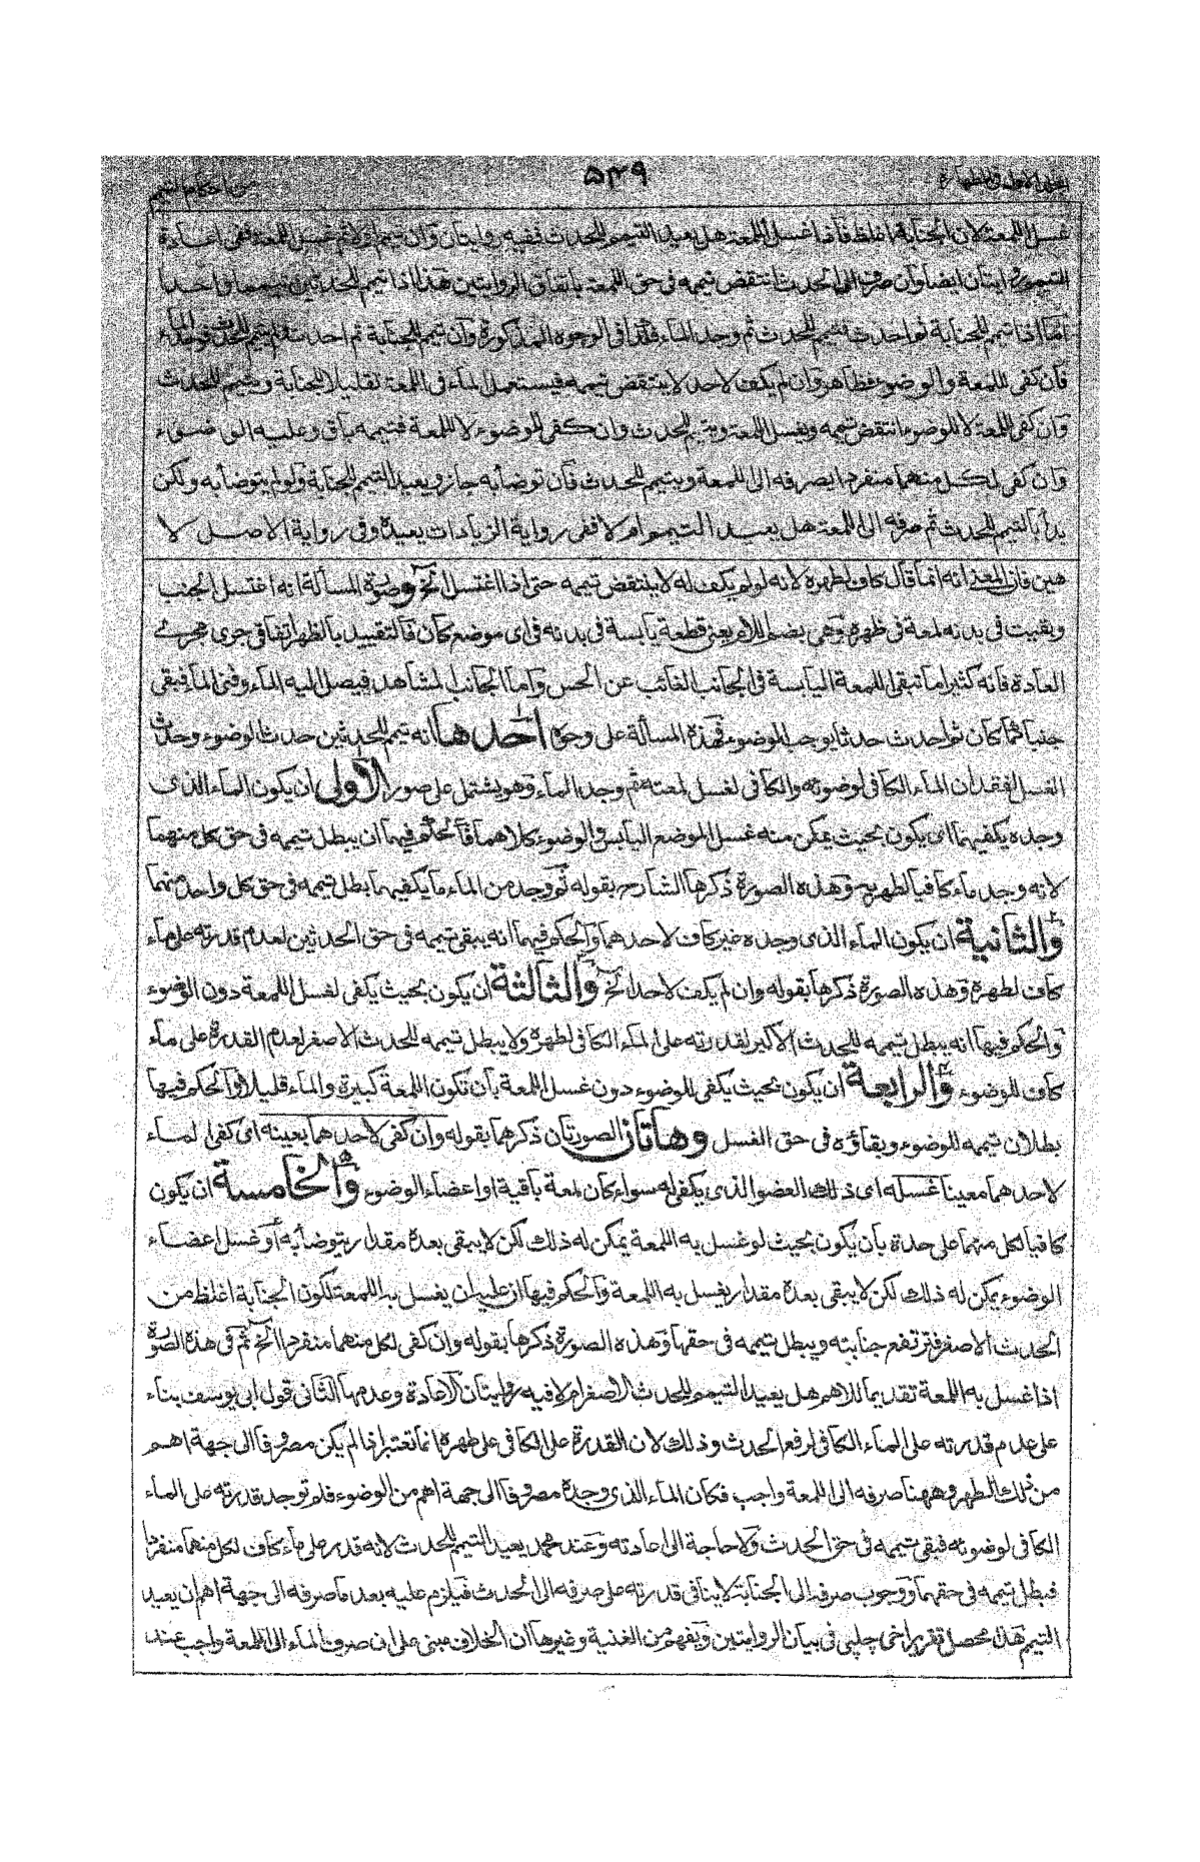 ٥٤٩
من احكام التيمم
غسل اللمعة لان الجنابة اغلظ فاذا غسل اللمعة هل يعيد التيمم للحدث ففيه روايتان وان تيمم اولا ثم غسل اللمعة ففى اعادة
التيمم روايتان ايضا وان صرف الى الحدث انتقض تيممه فى حق اللمعة باتفاق الروايتين هذا اذا تيمم للحدثين تيمما واحدا
اما اذا تيمم للجنابة ثم احدث فتيمم للحدث ثم وجد الماء فكذا فى الوجوه المذكورة وان تيمم للجنابة ثم احدث ولم يتيمم للحدث فوجد الماء
فان كفى للمعة والوضوء فظاهر وان لم يكف لاحد لا ينتقض تيممه فيستعمل الماء فى اللمعة تقليلا للجنابة ويتيمم للحدث
وان كفى اللمعة لا للوضوء انتقض تيممه ويغسل اللمعة ويتيمم للحدث وان كفى للوضوء لا للمعة فتيممه باق وعليه الوضوء
وان كفى لكل منهما منفردا يصرفه الى اللمعة ويتيمم للحدث فان توضأ به جاز ويعيد التيمم للجنابة ولو لم يتوضأ به ولكن
بدأ بالتيمم للحدث ثم صرفه الى اللمعة هل يعيد التيمم ام لا ففى رواية الزيادات يعيد وفى رواية الاصل لا
هين فان المعذ انه انما قال كاف لطهره لانه لو لم يكف له لا ينتقض تيممه حتى اذا اغتسل الخ وصورة المسألة انه اغتسل الجنب
وبقيت فى بدنه لمعة فى ظهره وهى بضم اللام يعنى قطعة يابسة فى بدنه فى اى موضع كان فالتقييد بالظهر اتفاقى جرى مجرى
العادة فانه كثيرا ما تبقى اللمعة اليابسة فى الجانب الغائب عن الحس واما الجانب المشاهد فيصل اليه الماء وفنى الماء فبقى
جنبا كما كان ثم احدث حدثا يوجب الوضوء فهذه المسألة على وجوه احدها انه تيمم للحدثين حدث الوضوء وحدث
الغسل لفقدان الماء الكافى لوضوئه والكافى لغسل لمعته ثم وجد الماء وهو يشتمل على صور الاولى ان يكون الماء الذى
وجده يكفيهما اى يكون بحيث يمكن منه غسل الموضع اليابس والوضوء كلاهما فالحكم فيها ان يبطل تيممه فى حق كل منهما
لانه وجد ماء كافيا لطهره وهذه الصورة ذكرها الشارح بقوله ثم وجد من الماء ما يكفيهما بطل تيممه فى حق كل واحد منهما
والثانية ان يكون الماء الذى وجده غير كاف لاحدهما والحكم فيها انه يبقى تيممه فى حق الحدثين لعدم قدرته على ماء
كاف لطهره وهذه الصورة ذكرها بقوله وان لم يكف لاحد الخ والثالثة ان يكون بحيث يكفى لغسل اللمعة دون الوضوء
والحكم فيها انه يبطل تيممه للحدث الاكبر لقدرته على الماء الكافى لطهره ولا يبطل تيممه للحدث الاصغر لعدم القدرة على ماء
كاف للوضوء والرابعة ان يكون بحيث يكفى للوضوء دون غسل اللمعة بان تكون اللمعة كبيرة والماء قليلا والحكم فيها
بطلان تيممه للوضوء وبقاؤه فى حق الغسل وهاتان الصورتان ذكرهما بقوله وان كفى لاحدهما بعينه اى كفى الماء
لاحدهما معينا غسله اى ذلك العضو الذى يكفى له سواء كان لمعة باقية او اعضاء الوضوء والخامسة ان يكون
كافيا لكل منهما على حدة بان يكون بحيث لو غسل به اللمعة يمكن له ذلك لكن لا يبقى بعده مقدار يتوضأ به او غسل اعضاء
الوضوء يمكن له ذلك لكن لا يبقى بعده مقدار يغسل به اللمعة والحكم فيها ان عليه ان يغسل به اللمعة لكون الجنابة اغلظ من
الحدث الاصغر فترتفع جنابته ويبطل تيممه فى حقها وهذه الصورة ذكرها بقوله وان كفى لكل منهما منفردا الخ ثم فى هذه الصورة
اذا غسل به اللمعة تقديما للاهم هل يعيد التيمم للحدث الاصغر ام لا فيه روايتان الاعادة وعدمها الثانى قول ابى يوسف بناء
على عدم قدرته على الماء الكافى لرفع الحدث وذلك لان القدرة على الكافى على طهره انما تعتبر اذا لم يكن مصروفا الى جهة اهم
من ذلك الطهر وههنا صرفه الى اللمعة واجب فكان الماء الذى وجده مصروفا الى جهة اهم من الوضوء فلم توجد قدرته على الماء
الكافى لوضوئه فبقى تيممه فى حق الحدث ولا حاجة الى اعادته وعند محمد يعيد التيمم للحدث لانه قدر على ماء كاف لكل منهما منفردا
فبطل تيممه فى حقهما ووجوب صرفه الى الجنابة لا ينافى قدرته على صرفه الى الحدث فيلزم عليه بعد ما صرفه الى جهة اهم ان يعيد
التيمم هذا محصل تقرير اخى چلپى فى بيان الروايتين ويفهم من الغنية وغيرها ان الخلاف مبنى على ان صرف الماء الى اللمعة واجب عند